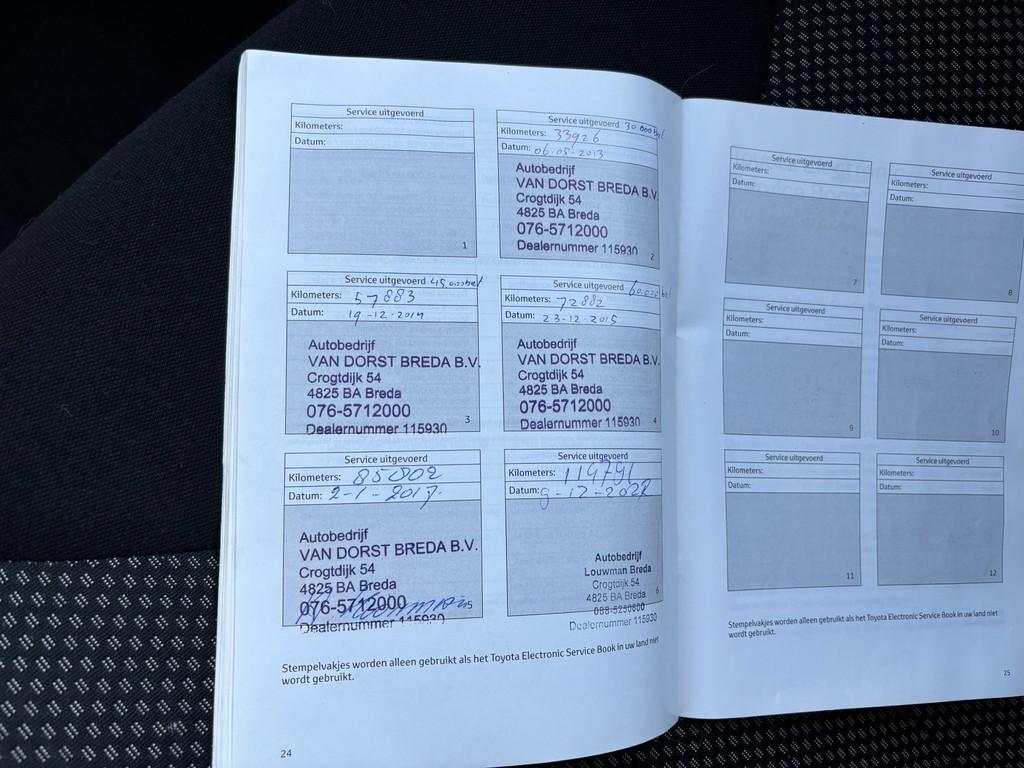 Service uitgevoerd
Kilometers:
Datum:
1
Service uitgevoerd 30.000
Kilometers: 33926
Datum: 06-05-2013
Autobedrijf
VAN DORST BREDA B.V.
Crogtdijk 54
4825 BA Breda
076-5712000
Dealernummer 115930
2
Service uitgevoerd 45.000
Kilometers: 57883
Datum: 19-12-2014
Autobedrijf
VAN DORST BREDA B.V.
Crogtdijk 54
4825 BA Breda
076-5712000
Dealernummer 115930
3
Service uitgevoerd 60.000
Kilometers: 72882
Datum: 23-12-2015
Autobedrijf
VAN DORST BREDA B.V.
Crogtdijk 54
4825 BA Breda
076-5712000
Dealernummer 115930
4
Service uitgevoerd
Kilometers: 85802
Datum: 2-1-2017
Autobedrijf
VAN DORST BREDA B.V.
Crogtdijk 54
4825 BA Breda
076-5712000
5
Dealernummer 115930
Service uitgevoerd
Kilometers: 114791
Datum: 9-12-2022
Autobedrijf
Louwman Breda
Crogtdijk 54
4825 BA Breda
6
088-5250800
Dealernummer 115930
Stempelvakjes worden alleen gebruikt als het Toyota Electronic Service Book in uw land niet
wordt gebruikt.
24
Service uitgevoerd
Kilometers:
Datum:
7
Service uitgevoerd
Kilometers:
Datum:
8
Service uitgevoerd
Kilometers:
Datum:
9
Service uitgevoerd
Kilometers:
Datum:
10
Service uitgevoerd
Kilometers:
Datum:
11
Service uitgevoerd
Kilometers:
Datum:
12
Stempelvakjes worden alleen gebruikt als het Toyota Electronic Service Book in uw land niet
wordt gebruikt.
25